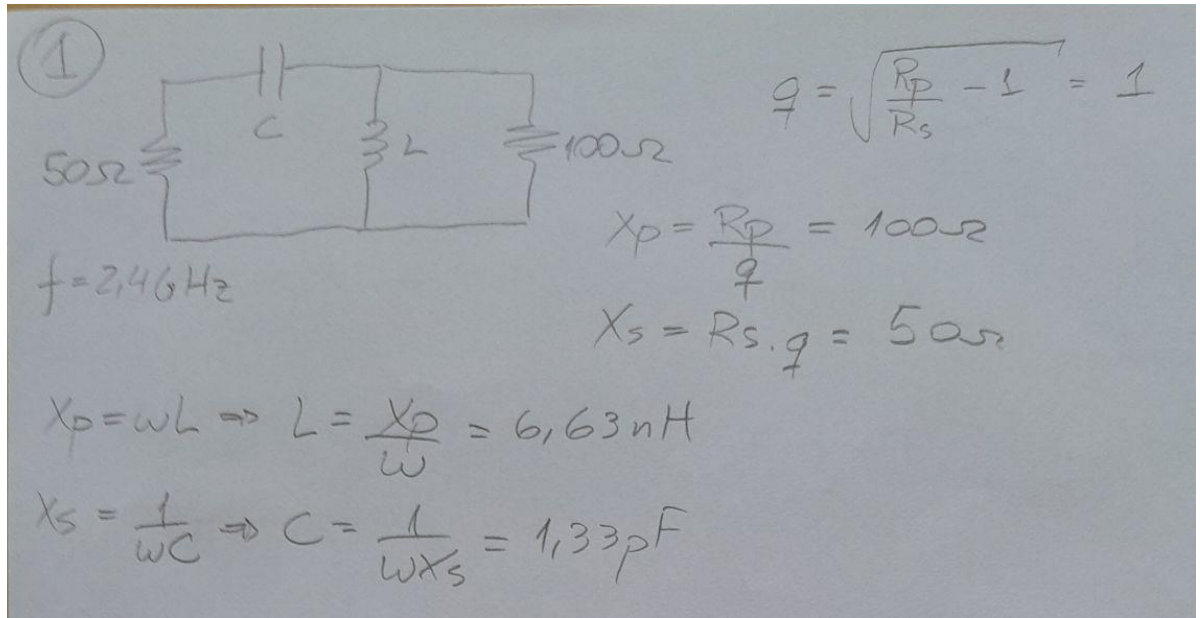 1
C
50Ω
L
100Ω
f=2,4GHz
q = √(Rp/Rs - 1) = 1
Xp = Rp/q = 100Ω
Xs = Rs.q = 50Ω
Xp=ωL ⇒ L = Xp/ω = 6,63nH
Xs = 1/ωC ⇒ C = 1/ωXs = 1,33pF